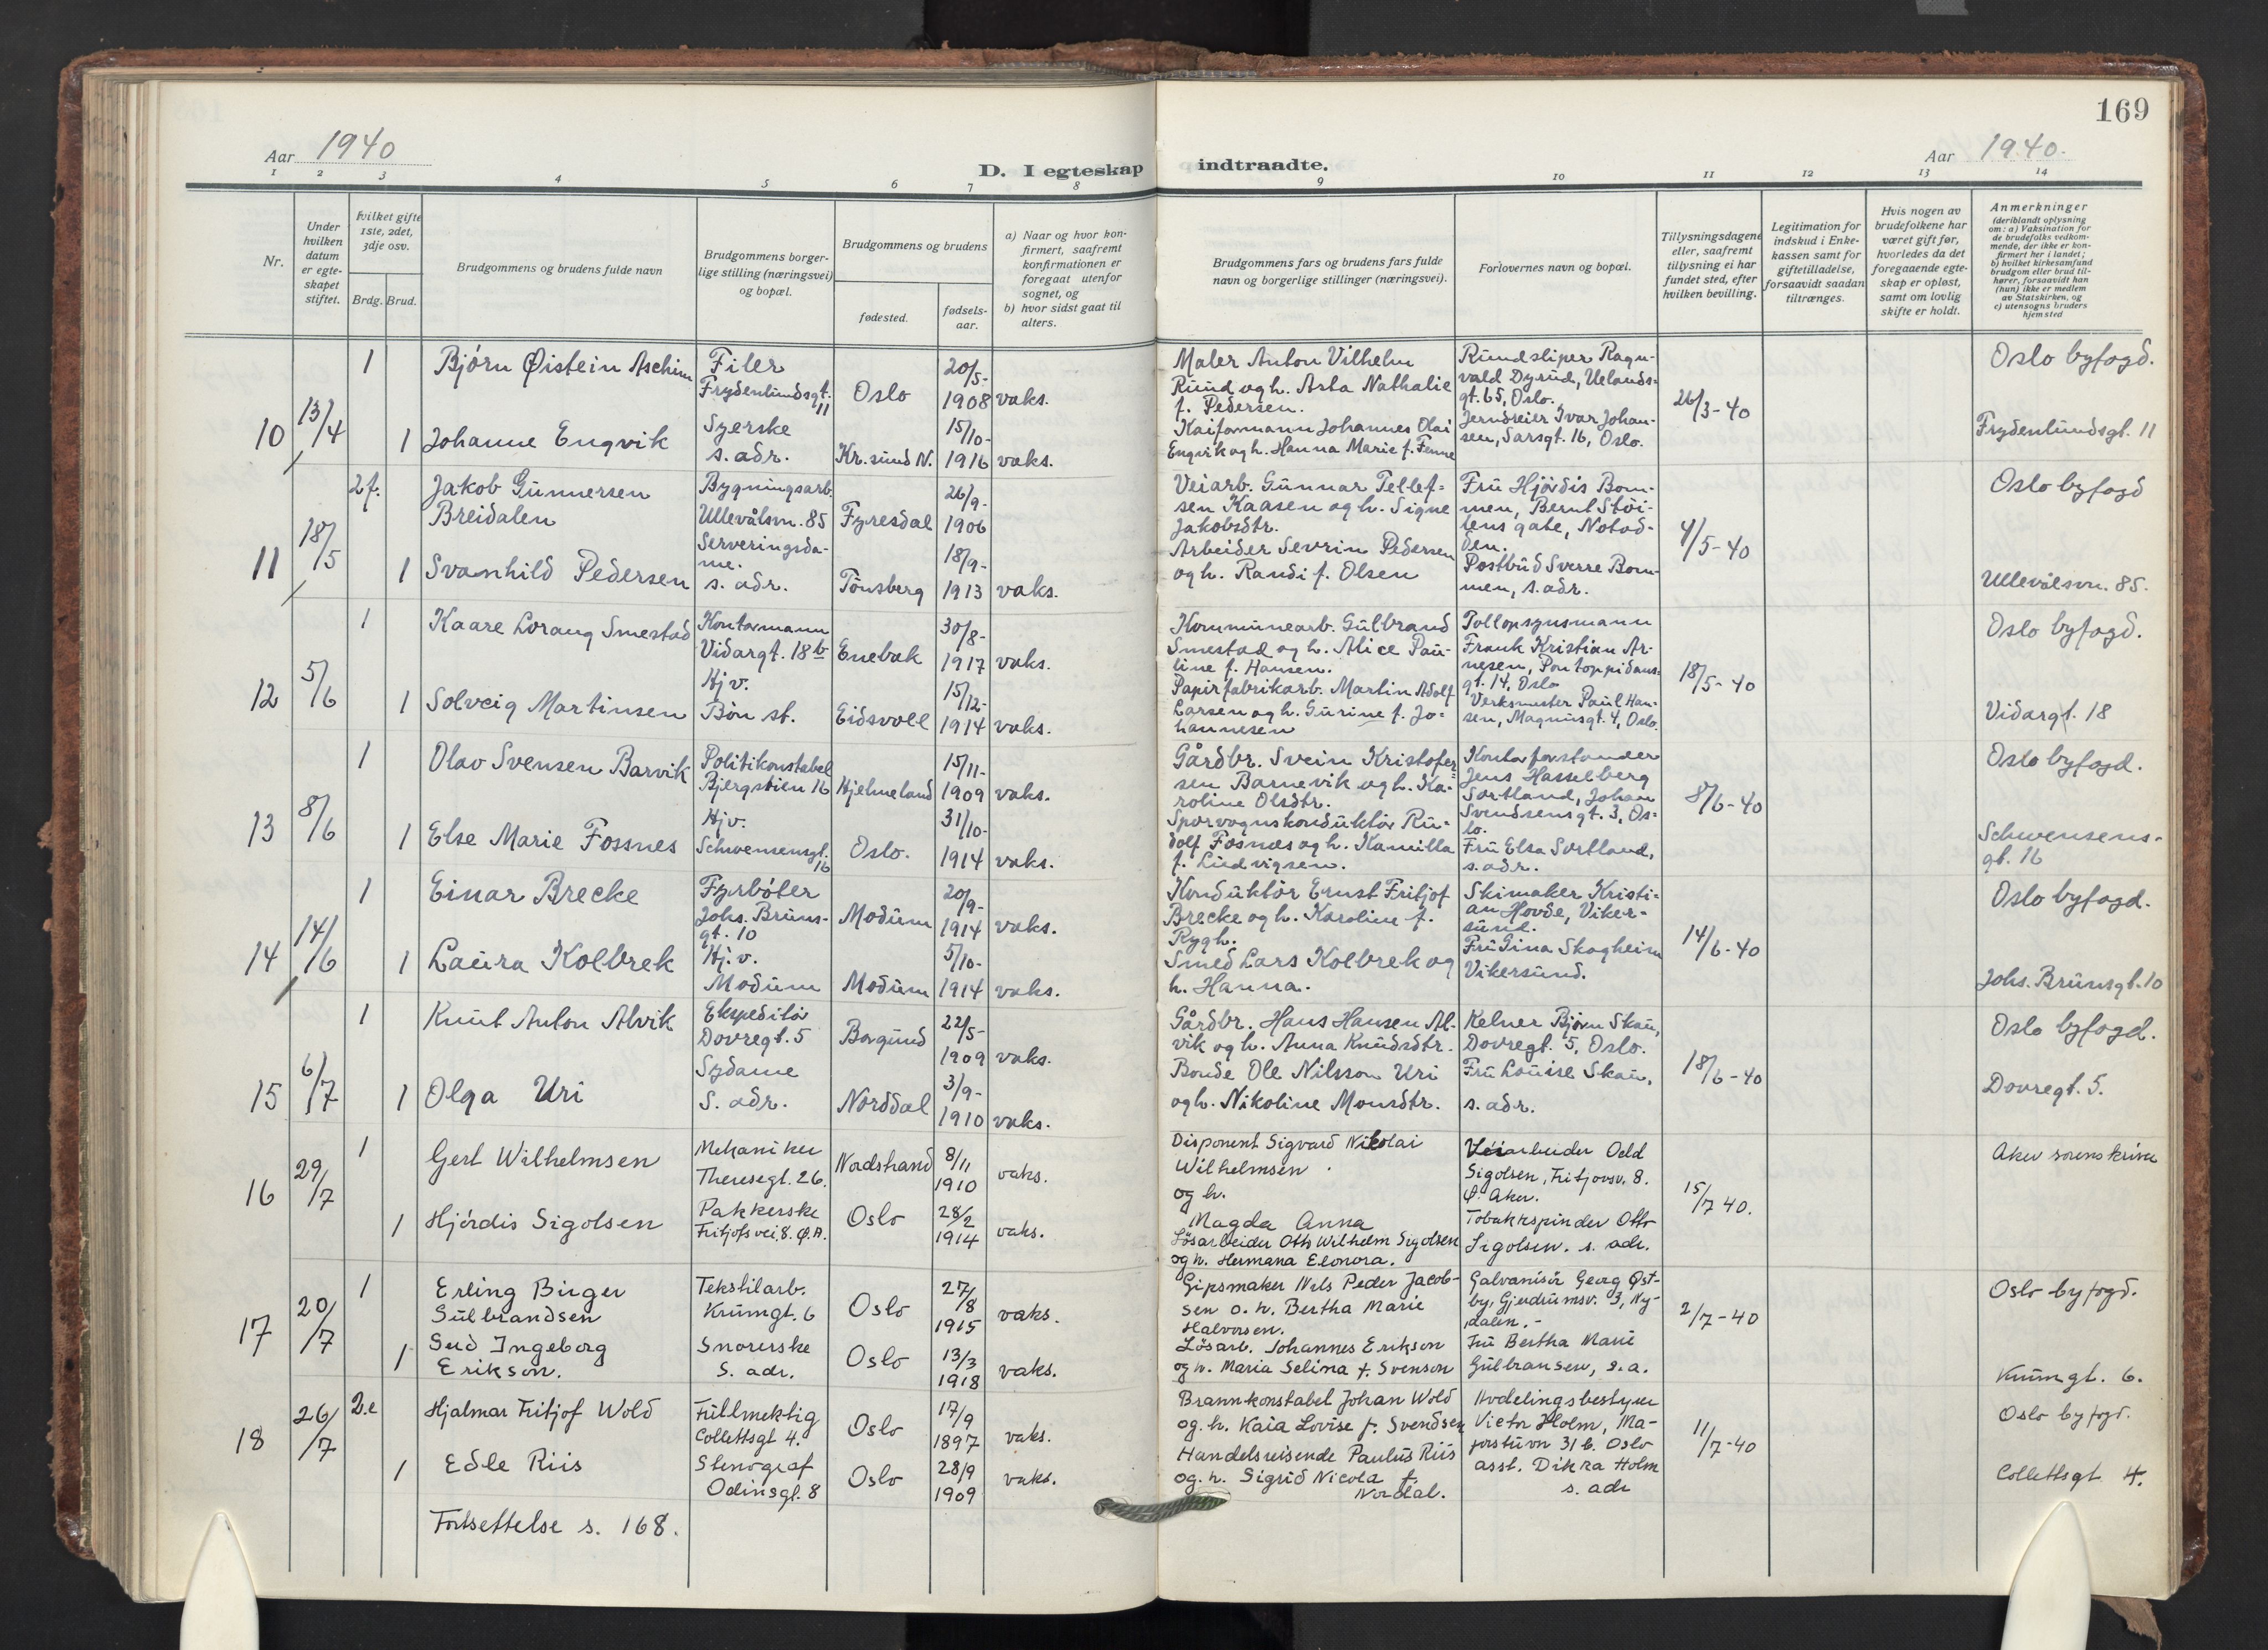 169
Aar 1940
D. I egteskap indtraadte.
Aar 1940.
1 2 3 4 5 6 7 8 9 10 11 12 13 14
Nr.
Under hvilken datum er egteskapet stiftet.
hvilket gifte 1ste, 2det, 3dje osv.
Brdg. Brud.
Brudgommens og brudens fulde navn
Brudgommens borgerlige stilling (næringsvei) og bopæl.
Brudgommens og brudens
fødested.
fødselsaar.
a) Naar og hvor konfirmert, saafremt konfirmationen er foregaat utenfor sognet, og
b) hvor sidst gaat til alters.
Brudgommens fars og brudens fars fulde navn og borgerlige stillinger (næringsvei).
Forlovernes navn og bopæl.
Tillysningsdagene eller, saafremt tillysning ei har fundet sted, efter hvilken bevilling.
Legitimation for indskud i Enkekassen samt for giftetilladelse, forsaavidt saadan tiltrænges.
Hvis nogen av brudefolkene har været gift før, hvorledes da det foregaaende egteskap er opløst, samt om lovlig skifte er holdt.
Anmerkninger
(deriblandt oplysning om: a) Vaksination for de brudefolks vedkommende, der ikke er konfirmert her i landet; b) hvilket kirkesamfund brudgom eller brud tilhører, forsaavidt han (hun) ikke er medlem av Statskirken, og c) utensogns bruders hjemsted
10
13/4
1
Bjørn Øistein Aschim
Filer
Frydenlundsgt. 11
Oslo
20/5-1908
vaks.
1
Johanne Engvik
Syerske
s. adr.
Kr.sund N.
15/10-1916
vaks.
Maler Anton Vilhelm
Ruud og h. Asta Nathalie
f. Pedersen.
Kaiformann Johannes Olai
Engvik og h. Hanna Marie f. Fenne
Rundsliper Ragn-
vald Dyrud, Uelands-
gt. 65, Oslo.
Jerndreier Ivar Johan-
sen, Sarsgt. 16, Oslo.
26/3-40
Oslo byfogd.
Frydenlundsgt. 11
11
18/5
2f.
Jakob Gunnersen
Breidalen
Bygningsarb.
Ullevålsvn. 85
Fyresdal
26/9-1906
1
Svanhild Pedersen
Serveringsda-
me.
s. adr.
Tönsberg
18/9-1913
vaks.
Veiarb. Gunnar Tellef-
sen Kaasen og h. Signe
Jakobsdtr.
Arbeider Sevrin Pedersen
og h. Randi f. Olsen
Fru Hjördis Bom-
men, Bernt Stöi-
lens gate, Notod-
den.
Postbud Sverre Bom-
men, s. adr.
4/5-40
Oslo byfogd
Ullevålsvn. 85.
12
5/6
1
Kaare Lorang Smestad
Kontormann
Vidargt. 18 b
Enebak
30/8-1917
vaks.
1
Solveig Martinsen
Hjv.
Bön st.
Eidsvoll
15/12-1914
vaks.
Kommunearb. Gulbrand
Smestad og h. Alice Pau-
line f. Hansen.
Papirfabrikarb. Martin Adolf
Larsen og h. Gurine f. Jo-
hannesen
Tollopsynsmann
Frank Kristian Ar-
nesen, Pontoppidans-
gt. 14, Oslo
Verksmester Paul Han-
sen, Magnusgt. 4, Oslo.
18/5-40
Oslo byfogd.
Vidargt. 18
13
8/6
1
Olav Svensen Barvik
Politikonstabel
Bjergstien 16
Hjelmeland
15/11-1909
vaks.
1
Else Marie Fossnes
Hjv.
Schwensensgt. 16
Oslo.
31/10-1914
vaks.
Gårdbr. Svein Kristofer-
sen Barnevik og h. Ka-
roline Olsdtr.
Sporvognskonduktör Ru-
dolf Fosnæs og h. Kamilla
f. Ludvigsen.
Kontorforstander
Jens Hasselberg
Sortland, Johan
Svendsensgt. 3, Os-
lo.
Fru Elsa Sortland,
s. adr.
8/6-40
Oslo byfogd.
Schwensens-
gt. 16
14
14/6
1
Einar Brecke
Fyrböter
Johs. Bruns-
gt. 10
Modum
20/9-1914
vaks.
1
Laura Kolbrek
Hj. v.
Modum
Modum
5/10-1914
vaks.
Konduktör Ernst Fritjof
Brecke og h. Karoline f.
Rygh.
Smed Lars Kolbrek og
h. Hanna.
Skimaker Kristi-
an Hovde, Viker-
sund.
Fru Gina Skogheim
Vikersund.
14/6-40
Oslo byfogd.
Johs. Brunsgt. 10
15
6/7
1
Knut Anton Alvik
Ekspeditör
Dovregt. 5
Borgund
22/5-1909
vaks.
1
Olga Uri
Sydame
S. adr.
Norddal
3/9-1910
vaks.
Gårdbr. Hans Hansen Al-
vik og h. Anna Knudsdtr.
Bonde Ole Nilsson Uri
og h. Nikoline Monsdtr.
Kelner Bjørn Skau,
Dovregt. 5, Oslo.
Fru Louise Skau,
s. adr.
18/6-40
Oslo byfogd.
Dovregt. 5.
16
29/7
1
Gert Wilhelmsen
Mekaniker
Theresegt. 26.
Nordstrand
8/11 1910
vaks.
1
Hjördis Sigolsen
Pakkerske
Fritjofsvei 8. Ø.A.
Oslo
28/2 1914
vaks.
Disponent Sigvard Nikolai
Wilhelmsen
og h.
Magda Anna
Lösarbeider Otto Wilhelm Sigolsen
og h. Hermana Elonora.
Veiarbeider Odd
Sigolsen, Fritjovsv. 8.
Ø. Aker.
Tobakkspinder Otto
Sigolsen. s. adr.
15/7 40.
Aker sorenskriver
17
20/7
1
Erling Birger
Gulbrandsen
Tekstilarb.
Krumgt. 6
Oslo
27/8 1915
vaks.
1
Gud Ingeborg
Erikson.
Snorerske
S. adr.
Oslo
13/3 1918
vaks.
Gipsmaker Nils Peder Jacob-
sen o. h. Bertha Marie
Halvorsen.
Lösarb. Johannes Erikson
og h. Maria Selima f. Svenson
Galvanisör Georg Øst-
by, Gjerdrumsv. 3, Ny-
dalen.-
Fru Bertha Marie
Gulbransen, s.a.
2/7-40
Oslo byfogd.
Krumgt. 6.
18
26/7
2.e
Hjalmar Fritjof Wold
Fullmektig
Collettsgt 4.
Oslo
17/9 1897
vaks.
1
Edle Riis
Stenograf
Odinsgt. 8
Oslo
28/9 1909
vaks.
Brannkonstabel Johan Wold
og. h. Kaia Lovise f. Svendsen
Handelsreisende Paulus Riis
og. h. Sigrid Nicola f.
Nordal.
Avdelingsbestyrer
Victor Holm, Ma-
jorstuvn 31 b. Oslo
asst. Dikra Holm
s. adr
11/7-40
Oslo byfogd.
Collettsgt 4.
Fortsettelse s. 168.